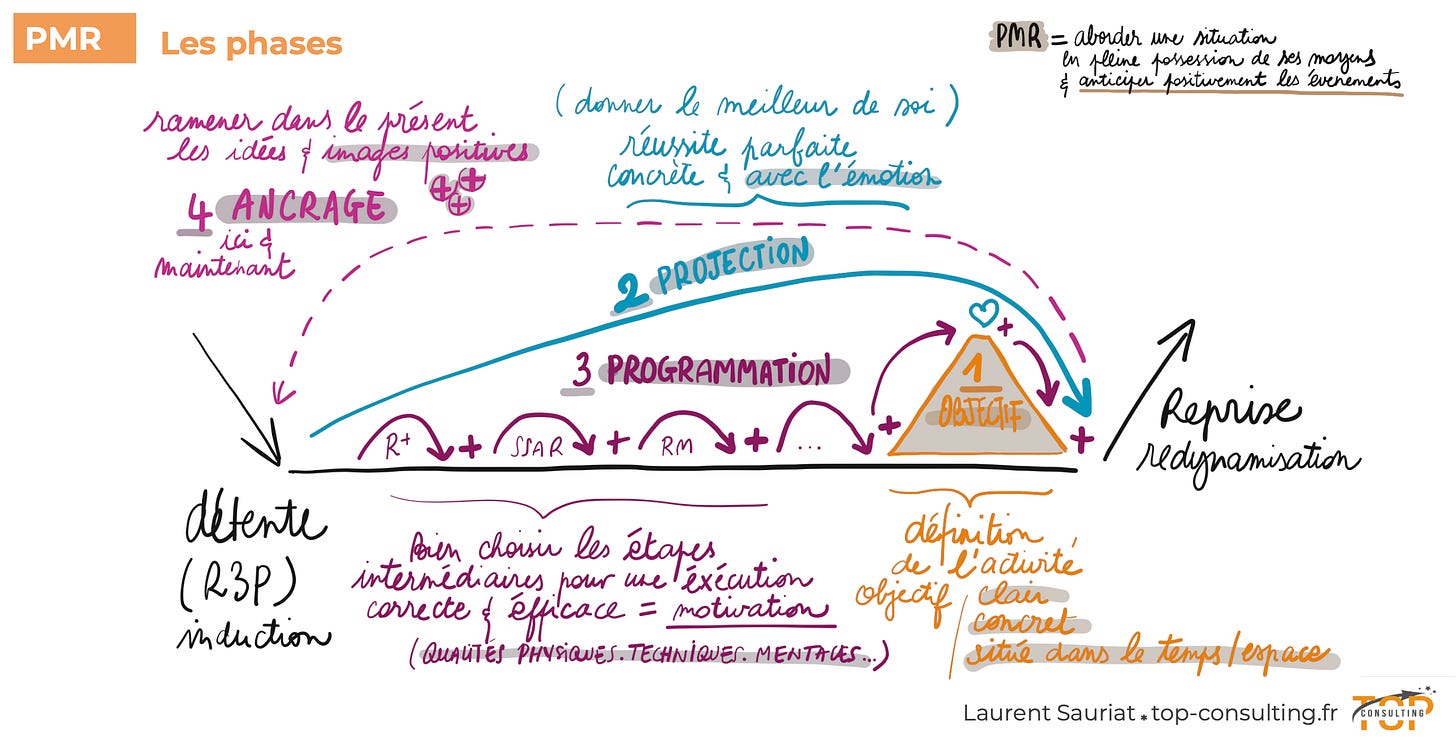 PMR
Les phases
PMR = aborder une situation
en pleine possession de ses moyens
& anticiper positivement les évenements
ramener dans le présent
les idées & images positives
+ + +
4 ANCRAGE
ici &
maintenant
(donner le meilleur de soi)
réussite parfaite
concrète & avec l'émotion
2 PROJECTION
3 PROGRAMMATION
+
1
OBJECTIF
R+ + SSAR + RM + ... + +
Reprise
redynamisation
détente
(R3P)
induction
Bien choisir les étapes
intermédiaires pour une éxécution
correcte & éfficace = motivation
(QUALITÉS PHYSIQUES. TECHNIQUES. MENTALES...)
définition
de l'activité
objectif / clair
concret
situé dans le temps/espace
Laurent Sauriat * top-consulting.fr
TOP
CONSULTING